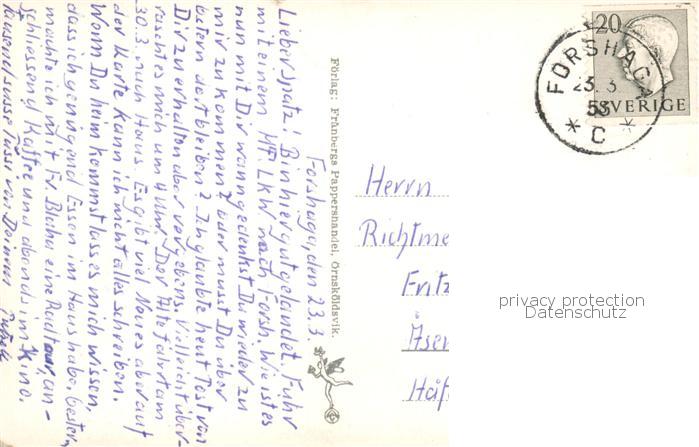 Forshaga, den 23.3.
Lieber Spatz! Bin hier gut gelandet. Fuhr
mit einem LKW. nach Forsh. Wie ist es
nun mit Dir wann gedenkst Du wieder zu
mir zu kommen? oder musst Du über
ostern dort bleiben? Ich glaubte heut Post von
Dir zu erhalten aber vergebens. Vielleicht über-
raschst es mich um 4 Uhr. Der Alte fährt am
30.3. nach Haus. Es gibt viel Neues aber auf
der Karte kann ich nicht alles schreiben.
Wann Du heim kommst lass es mich wissen,
dass ich genügend Essen im Haus habe. Gestern
machte ich mit Fr. Blaha eine Radtour, an-
schliessend Kaffee und abends im Kino.
Tausend süsse Bussi von Deiner
Förlag: Frånbergs Pappershandel, Örnsköldsvik.
20
SVERIGE
FORSHAGA
23. 3.
53
* C *
Herrn
Richtme
Fritz
Åsen
Håf
privacy protection
Datenschutz